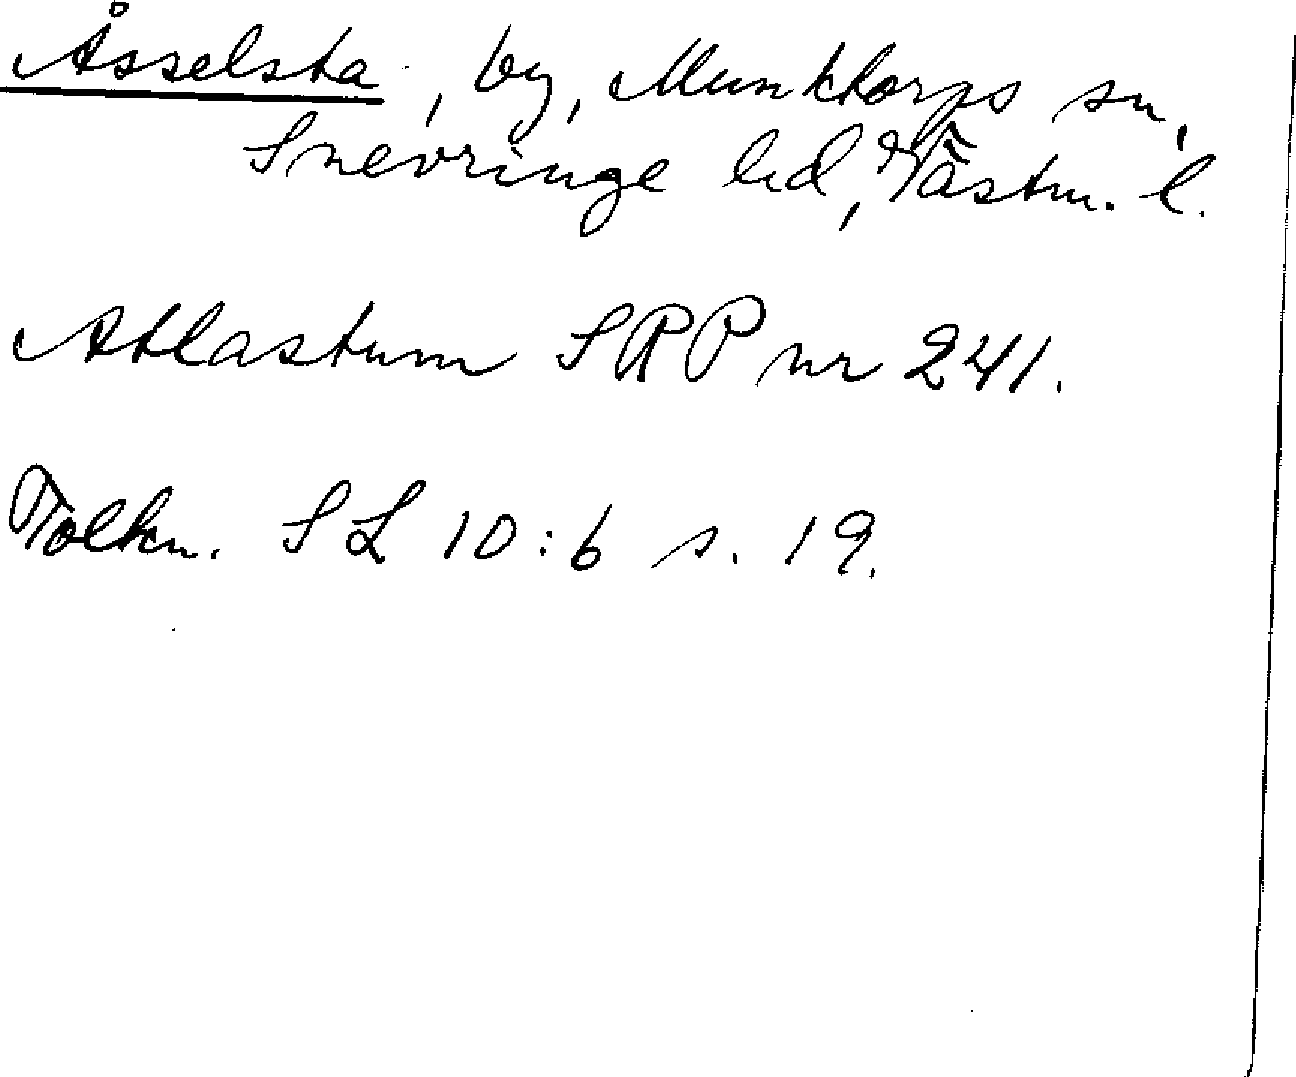 Åsselsta, by, Munktorps sn,
Snevringe hd, Västm. l.
Atlastum SRP nr 241.
Tolkn. SL 10:6 s. 19.